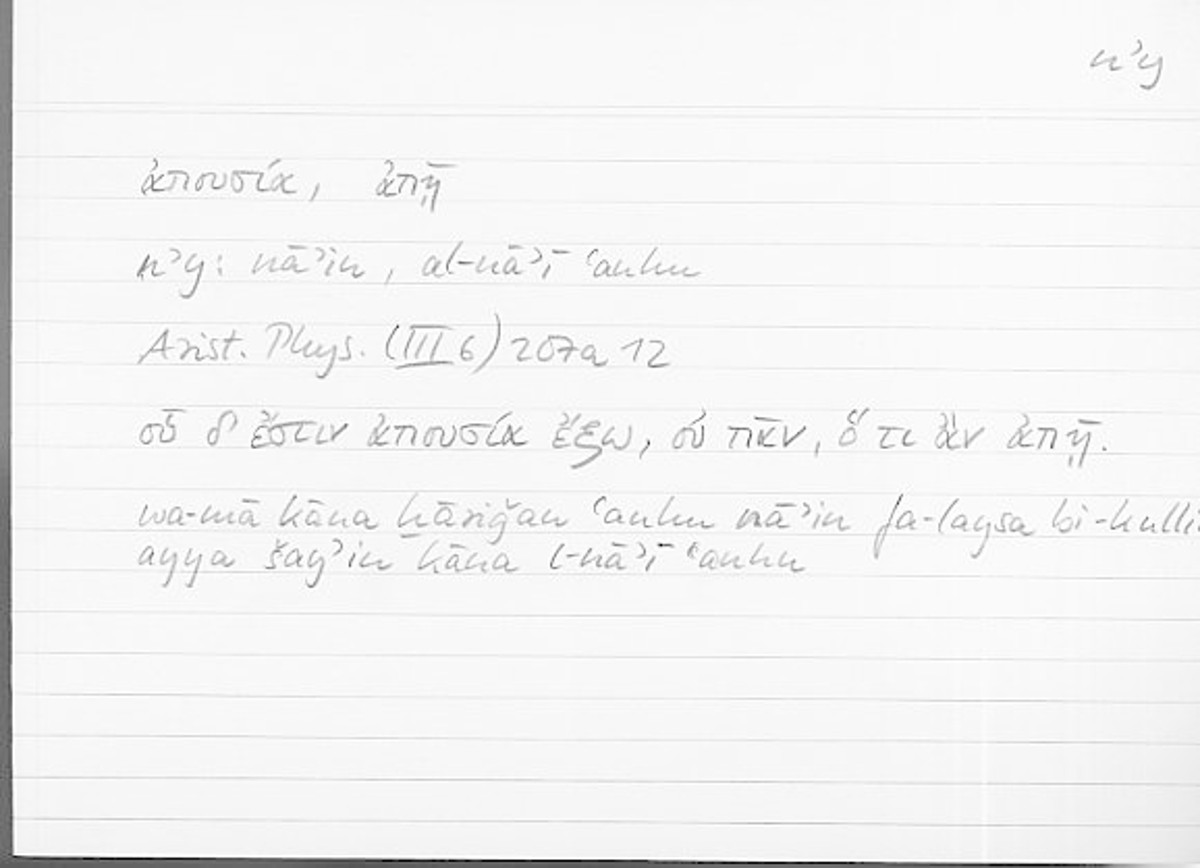 nʾy
ἀπουσία, ἀπῇ
nʾy: nāʾin, al-nāʾī ʿanhu
Arist. Phys. (III 6) 207a 12
οὗ δ' ἔστιν ἀπουσία ἔξω, οὐ πᾶν, ὅ τι ἂν ἀπῇ.
wa-mā kāna ḫāriǧan ʿanhu nāʾin fa-laysa bi-kulli
ayya šayʾin kāna l-nāʾī ʿanhu